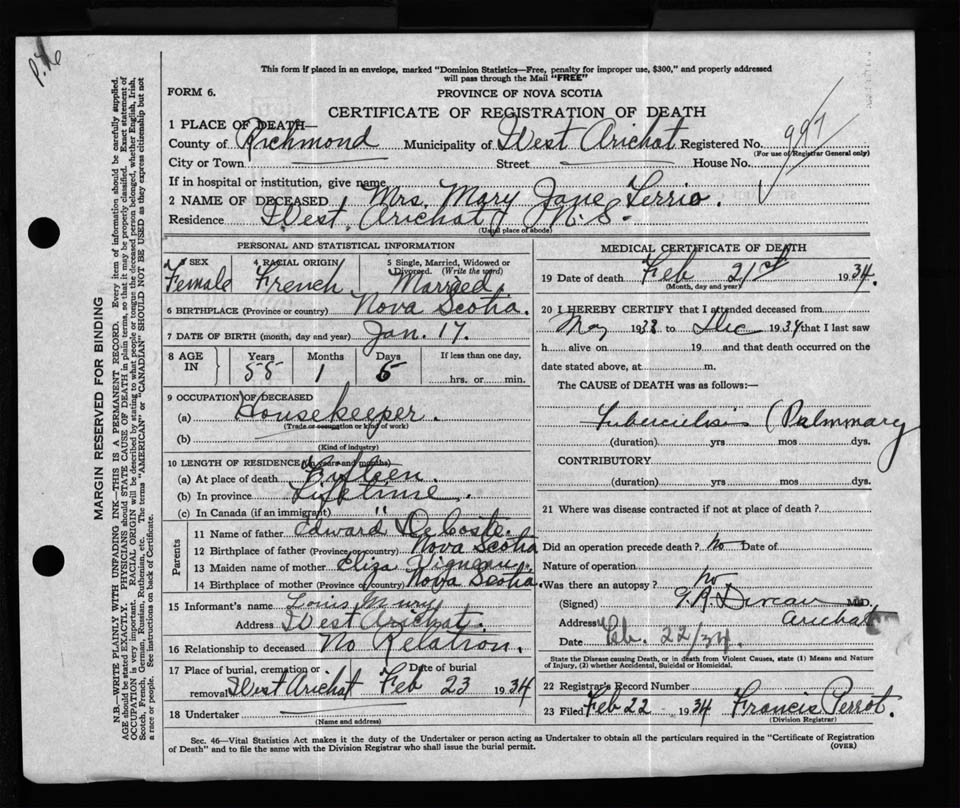 P.16
This form if placed in an envelope, marked "Dominion Statistics—Free, penalty for improper use, $300," and properly addressed
will pass through the Mail "FREE"
FORM 6.
PROVINCE OF NOVA SCOTIA
CERTIFICATE OF REGISTRATION OF DEATH
997
1 PLACE OF DEATH—
County of Richmond Municipality of West Arichat Registered No.
(For use of Registrar General only)
City or Town Street House No.
If in hospital or institution, give name
2 NAME OF DECEASED Mrs. Mary Jane Terrio.
Residence West Arichat N.S.
(Usual place of abode)
PERSONAL AND STATISTICAL INFORMATION
3 SEX 4 RACIAL ORIGIN 5 Single, Married, Widowed or Divorced. (Write the word)
Female French. Married.
6 BIRTHPLACE (Province or country) Nova Scotia.
7 DATE OF BIRTH (month, day and year) Jan. 17.
8 AGE IN Years Months Days If less than one day,
55 1 5 hrs. or min.
9 OCCUPATION OF DECEASED
(a) Housekeeper.
(Trade or occupation or kind of work)
(b)
(Kind of industry)
10 LENGTH OF RESIDENCE (in years and months)
(a) At place of death Fifteen.
(b) In province Lifetime.
(c) In Canada (if an immigrant) "
Parents
11 Name of father Edward DeCoste.
12 Birthplace of father (Province or country) Nova Scotia
13 Maiden name of mother Eliza Vigneau.
14 Birthplace of mother (Province or country) Nova Scotia.
15 Informant's name Louis Mury
Address West Arichat.
16 Relationship to deceased No Relation.
17 Place of burial, cremation or removal West Arichat Date of burial Feb 23 1934
18 Undertaker
(Name and address)
MEDICAL CERTIFICATE OF DEATH
19 Date of death Feb 21st 1934.
(Month, day and year)
20 I HEREBY CERTIFY that I attended deceased from
May 1933 to Dec 1934 that I last saw
h alive on 19 and that death occurred on the
date stated above, at m.
The CAUSE of DEATH was as follows:—
Tuberculosis (Pulmmary
(duration) yrs mos dys.
CONTRIBUTORY
(duration) yrs mos dys.
21 Where was disease contracted if not at place of death?
Did an operation precede death? No Date of
Nature of operation
Was there an autopsy? no
(Signed) M.D.
Address Arichat
Date Feb. 22/34.
State the Disease causing Death, or in death from Violent Causes, state (1) Means and Nature
of Injury, (2) whether Accidental, Suicidal or Homicidal.
22 Registrar's Record Number
23 Filed Feb 22 1934 Francis Perrot.
(Division Registrar)
Sec. 46—Vital Statistics Act makes it the duty of the Undertaker or person acting as Undertaker to obtain all the particulars required in the "Certificate of Registration
of Death" and to file the same with the Division Registrar who shall issue the burial permit.
(OVER)
MARGIN RESERVED FOR BINDING
N.B.—WRITE PLAINLY WITH UNFADING INK—THIS IS A PERMANENT RECORD. Every item of information should be carefully supplied.
AGE should be stated EXACTLY. PHYSICIANS should STATE CAUSE OF DEATH in plain terms, so that it may be properly classified. Exact statement of
OCCUPATION is very important. RACIAL ORIGIN will be described by stating to what people or tongue the deceased person belonged, whether English, Irish,
Scotch, French, German, Russian, Ruthenian, etc. The terms "AMERICAN" or "CANADIAN" SHOULD NOT BE USED as they express citizenship but not
a race or people. See instructions on back of Certificate.